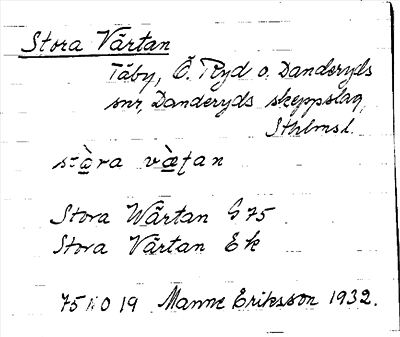 Stora Värtan
Täby, Ö. Ryd o. Danderyds
snr, Danderyds skeppslag,
Sthlmsl.
stὰra vὰ̈ʈan
Stora Wärtan G 75
Stora Värtan Ek
75 NO 19 Manne Eriksson 1932.